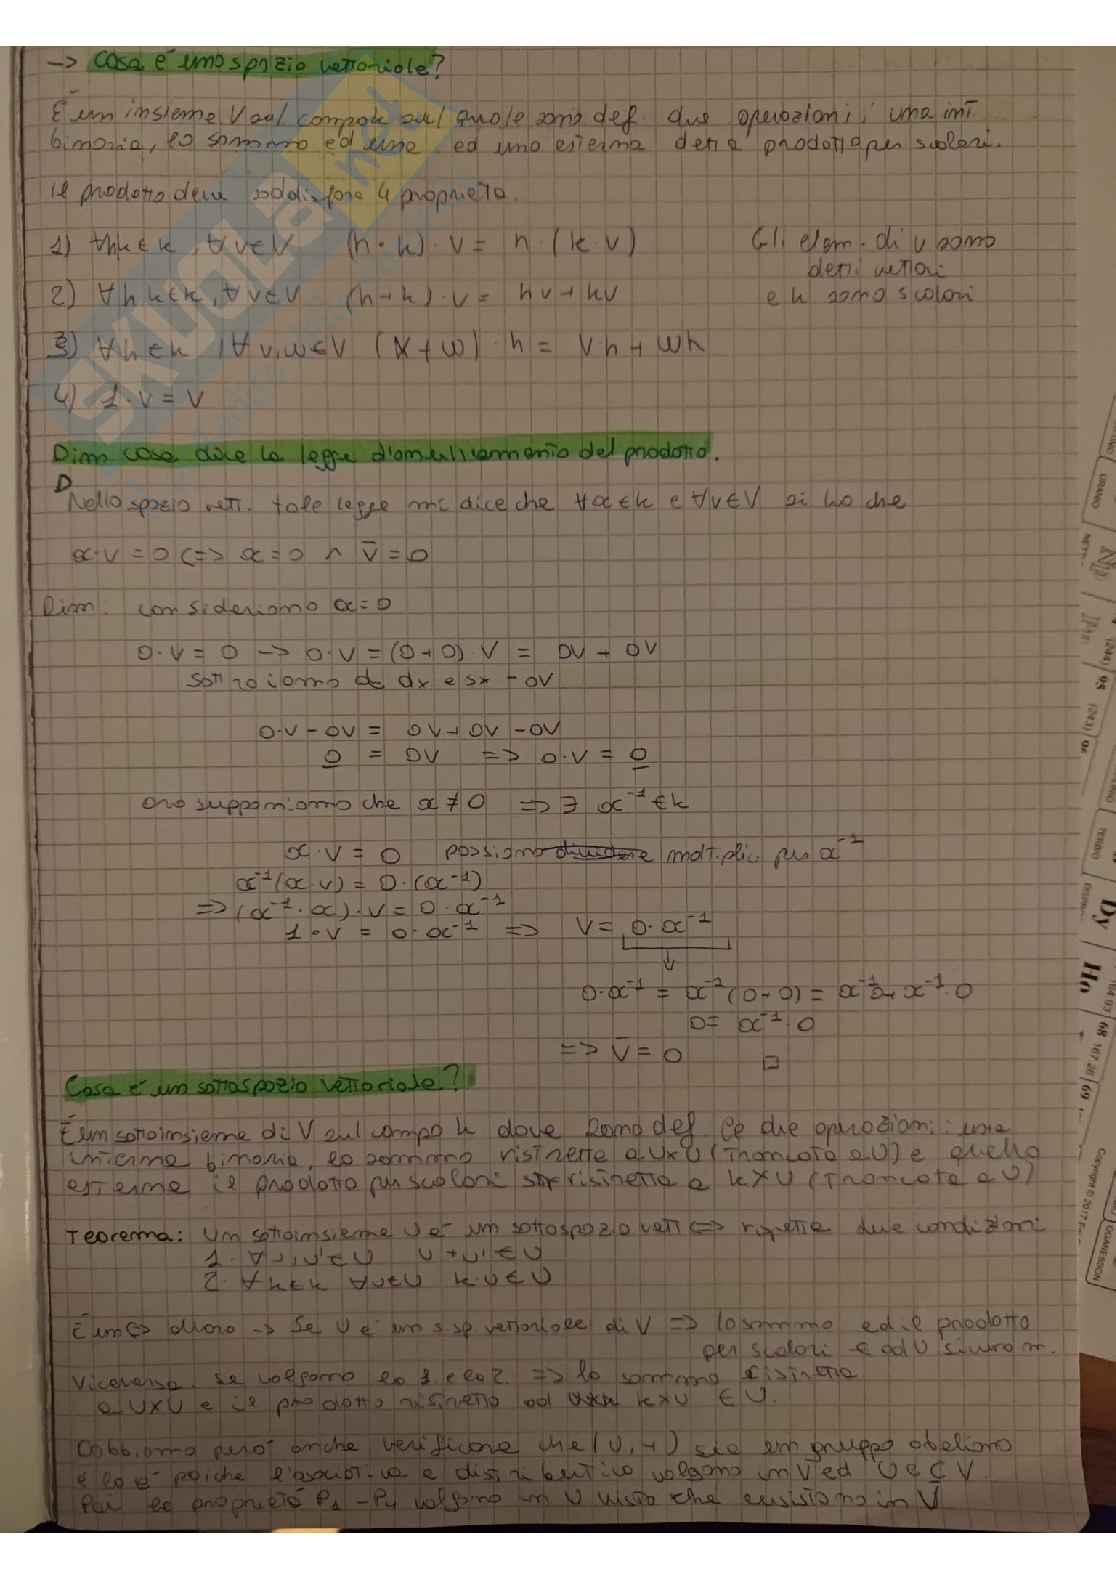 -> Cosa è uno spazio vettoriale?
È un insieme V sul campo k sul quale sono def. due operazioni; una int
binaria, la somma ed una ed una esterna detta prodotto per scalari.
il prodotto deve soddisfare 4 proprietà.
1) ∀h,k∈k, ∀v∈V (h·k)·v = h·(k·v) Gli elem. di v sono
detti vettori
2) ∀h,k∈k, ∀v∈V (h+k)·v = hv+kv e k sono scalari
3) ∀h∈k, ∀v,w∈V (v+w)·h = vh+wh
4) 1·v = v
Dim cosa dice la legge d'annullamento del prodotto.
D
Nello spazio vett. tale legge mi dice che ∀α∈k e ∀v∈V si ha che
α·v = 0 <=> α=0 ∧ v̄=0
Dim: consideriamo α=0
0·v = 0 -> 0·v = (0+0)·v = 0v + 0v
sottraiamo a dx e sx -0v
0·v-0v = 0v+0v-0v
0 = 0v => 0·v = 0
ora supponiamo che α≠0 => ∃ α⁻¹∈k
α·v = 0 possiamo moltiplic. per α⁻¹
α⁻¹(α·v) = 0·(α⁻¹)
=> (α⁻¹·α)·v = 0·α⁻¹
1·v = 0·α⁻¹ => v = 0·α⁻¹
↓
0·α⁻¹ = α⁻¹(0+0) = α⁻¹0+α⁻¹·0
0 = α⁻¹·0
=> v̄ = 0 □
Cosa è un sottospazio vettoriale?
È un sottoinsieme di V sul campo k dove sono def le due operazioni: una
interna binaria, la somma ristretta a U×U (Troncata a U) e quella
esterna il prodotto per scalari ristretta a k×U (Troncata a U)
Teorema: Un sottoinsieme U è un sottospazio vett <=> rispetta due condizioni
1. ∀u,u'∈U u+u'∈U
2. ∀k∈k ∀u∈U k·u∈U
È un <=> allora -> Se U è un ssp vettoriale di V => la somma ed il prodotto
per scalari è ad U
Viceversa se valgono la 1 e la 2. => la somma ristretta
a U×U e il prodotto ristretto ad k×U ∈ U.
Dobbiamo però anche verificare che (U,+) sia un gruppo abeliano
e lo è poiché l'associativa e distributiva valgono in V ed U è ⊆ V
Poi le proprietà P1-P4 valgono in U visto che esistono in V